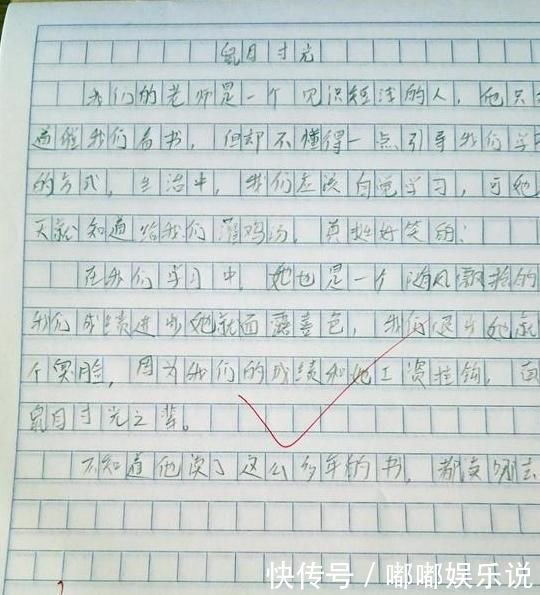 鼠目寸光
我们的老师是一个见识短浅的人，他只
道催我们看书，但却不懂得一点引导我们学
的方式，生活中，我们应该自觉学习，可她
天就知道给我们灌鸡汤，真挺好笑的；
在我们学习中，她也是一个随风飘的
我们成绩进步她就面露喜色，我们退步她就
个臭脸，因为我们的成绩和她工资挂钩，真
鼠目寸光之辈。
不知道他读了这么多年的书，都读哪去
快传号 / 嘟嘟娱乐说